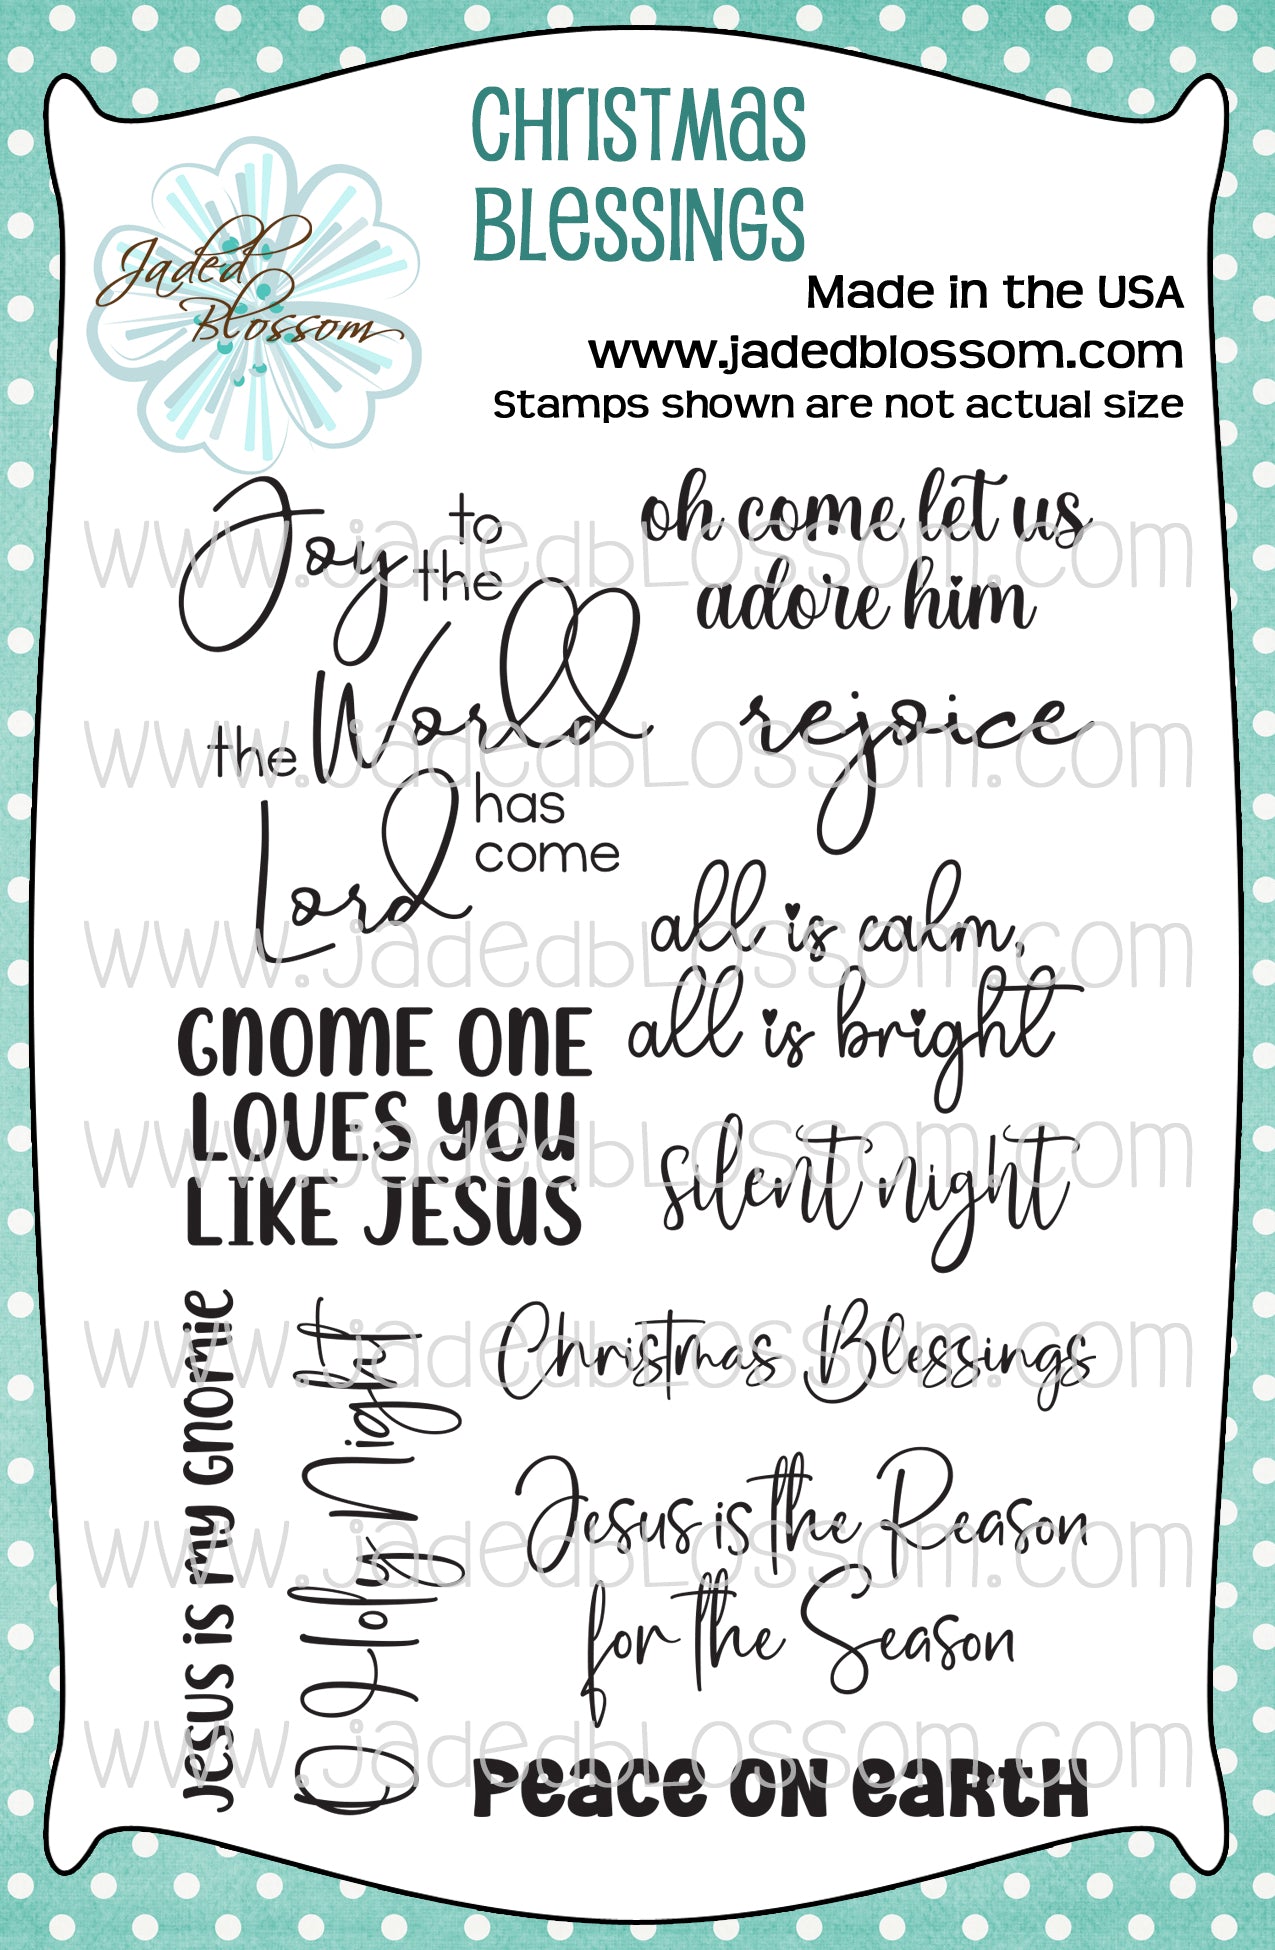 Christmas
Blessings
Jaded
Blossom
Made in the USA
www.jadedblossom.com
Stamps shown are not actual size
Joy to
the
World
the
Lord has
come
oh come let us
adore him
rejoice
all is calm,
all is bright
GNOME ONE
LOVES YOU
LIKE JESUS
silent night
Jesus is my Gnomie
O Holy Night
Christmas Blessings
Jesus is the Reason
for the Season
Peace on Earth
www.jadedblossom.com
www.jadedblossom.com
www.jadedblossom.com
www.jadedblossom.com
www.jadedblossom.com
www.jadedblossom.com
www.jadedblossom.com